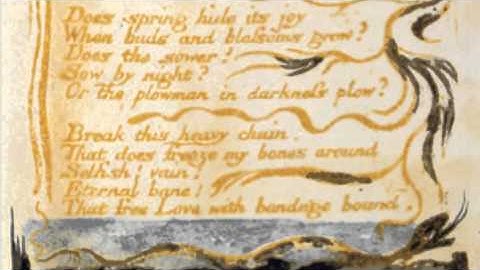 Does spring hide its joy
When buds and blossoms grow?
Does the sower?
Sow by night?
Or the plowman in darkness plow?
Break this heavy chain.
That does freeze my bones around
Selfish! vain!
Eternal bane!
That free Love with bondage bound.